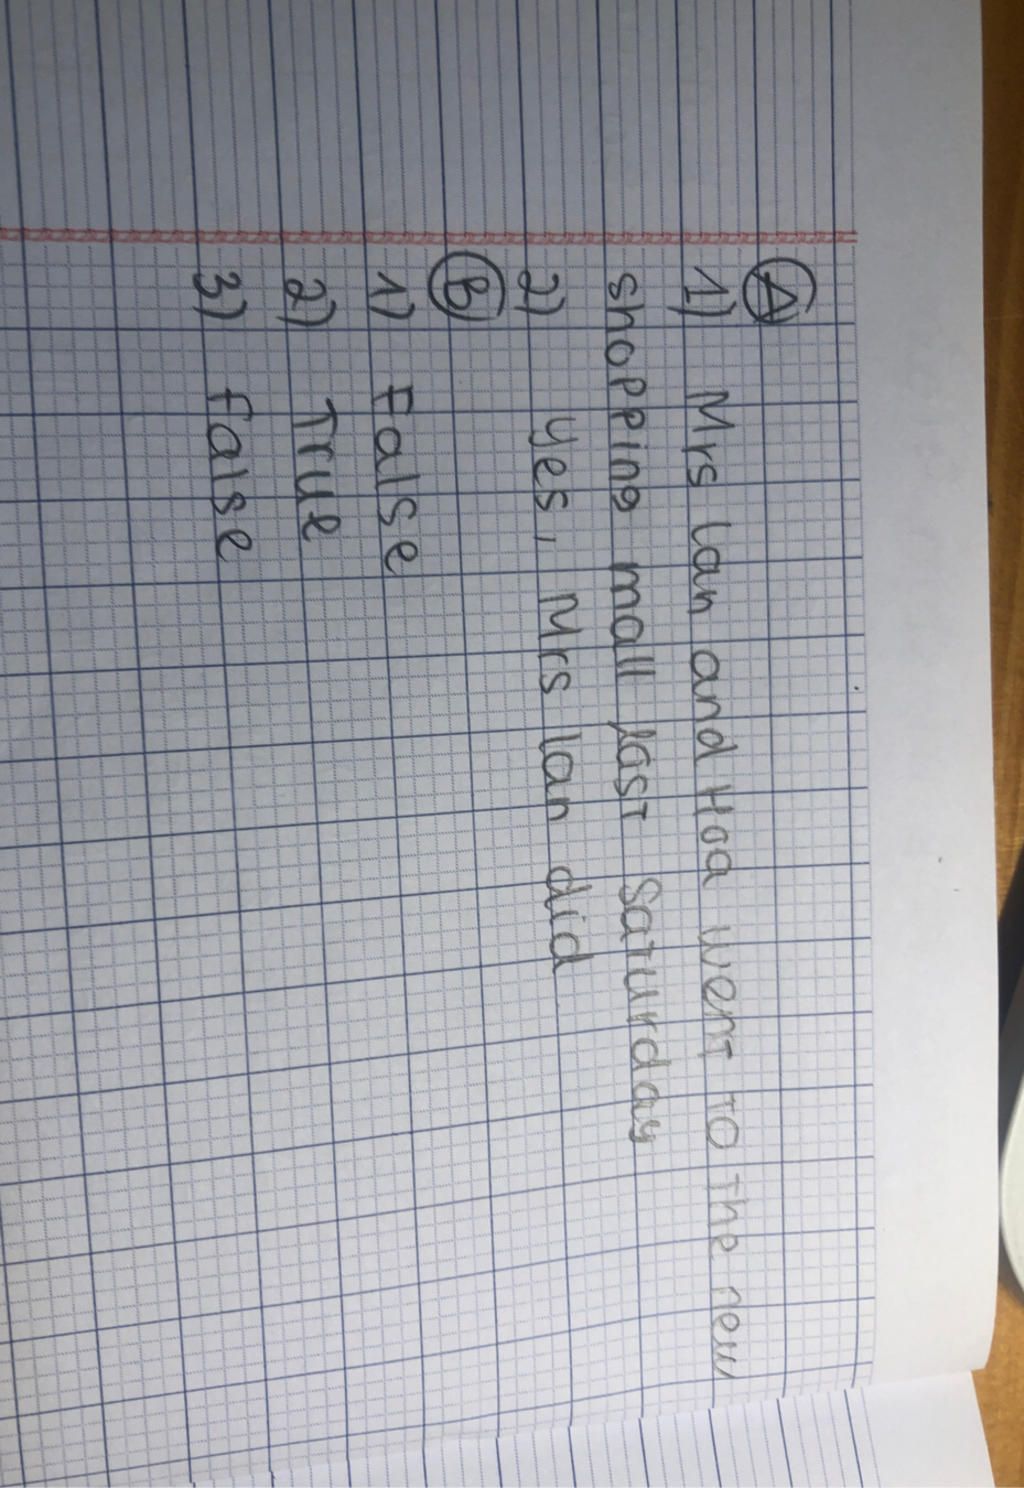 A
1) Mrs lan and Hoa went to the new
shopping mall last Saturday
2) yes, Mrs lan did
B
1) False
2) True
3) false